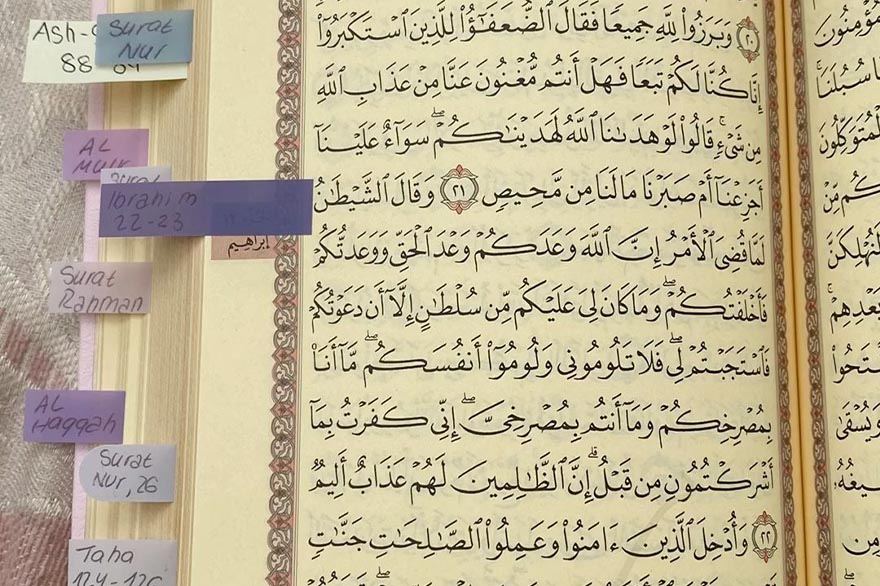 مُؤْمِنُونَ
سُبُلَنَا
لْمُتَوَكِّلُونَ
كُم مِّنْ
لَنُهْلِكَنَّ
بَعْدِهِمْ
ويُسْقَىٰ
سِيغُهُ
٢٠ وَبَرَزُوا۟ لِلَّهِ جَمِيعًا فَقَالَ ٱلضُّعَفَـٰٓؤُا۟ لِلَّذِينَ ٱسْتَكْبَرُوٓا۟
إِنَّا كُنَّا لَكُمْ تَبَعًا فَهَلْ أَنتُم مُّغْنُونَ عَنَّا مِنْ عَذَابِ ٱللَّهِ
مِن شَىْءٍ ۚ قَالُوا۟ لَوْ هَدَىٰنَا ٱللَّهُ لَهَدَيْنَـٰكُمْ ۖ سَوَآءٌ عَلَيْنَآ
أَجَزِعْنَآ أَمْ صَبَرْنَا مَا لَنَا مِن مَّحِيصٍ ٢١ وَقَالَ ٱلشَّيْطَـٰنُ
لَمَّا قُضِىَ ٱلْأَمْرُ إِنَّ ٱللَّهَ وَعَدَكُمْ وَعْدَ ٱلْحَقِّ وَوَعَدتُّكُمْ
فَأَخْلَفْتُكُمْ ۖ وَمَا كَانَ لِىَ عَلَيْكُم مِّن سُلْطَـٰنٍ إِلَّآ أَن دَعَوْتُكُمْ
فَٱسْتَجَبْتُمْ لِى ۖ فَلَا تَلُومُونِى وَلُومُوٓا۟ أَنفُسَكُم ۖ مَّآ أَنَا۠
بِمُصْرِخِكُمْ وَمَآ أَنتُم بِمُصْرِخِىَّ ۖ إِنِّى كَفَرْتُ بِمَآ
أَشْرَكْتُمُونِ مِن قَبْلُ ۗ إِنَّ ٱلظَّـٰلِمِينَ لَهُمْ عَذَابٌ أَلِيمٌ
٢٢ وَأُدْخِلَ ٱلَّذِينَ ءَامَنُوا۟ وَعَمِلُوا۟ ٱلصَّـٰلِحَـٰتِ جَنَّـٰتٍ
إبراهيم
Ash-
88
Surat
Nur
AL
Mulk
Surat
Ibrahim
22-23
Surat
Rahman
AL
Haqqah
Surat
Nur, 26
Taha